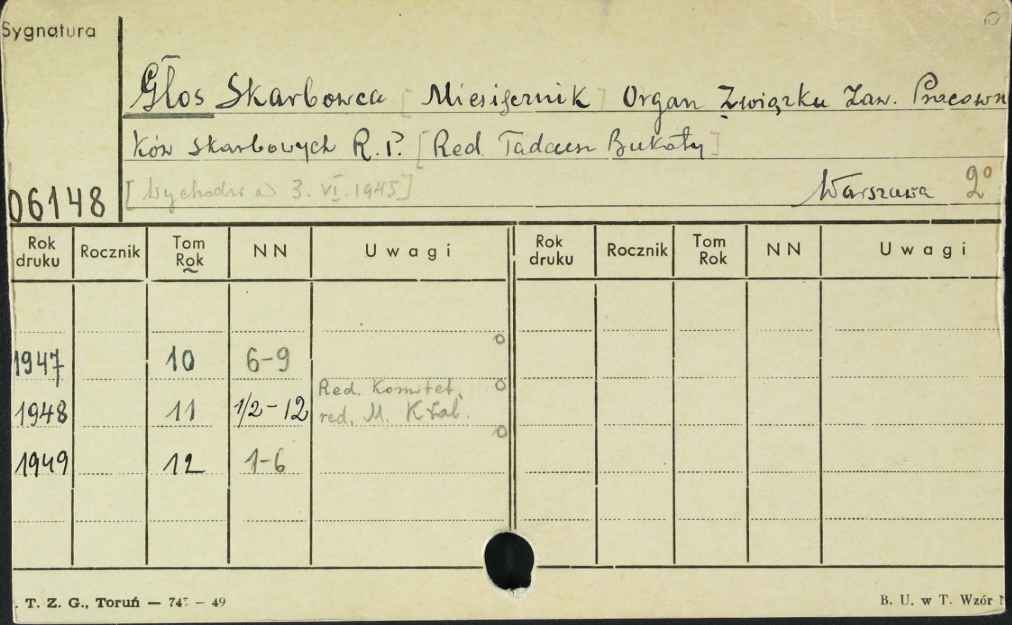 Sygnatura
Głos Skarbowca [Miesięcznik] Organ Związku Zaw. Pracown
ków skarbowych R.P. [Red. Tadeusz Bukały]
[Wychodzi od 3.VI.1945] Warszawa 2°
06148
Rok druku Rocznik Tom Rok NN Uwagi Rok druku Rocznik Tom Rok NN Uwagi
1947 10 6-9
1948 11 1/2-12 Red. Komitet, red. M. Kral.
1949 12 1-6
. T. Z. G., Toruń — 747 — 49 B. U. w T. Wzór